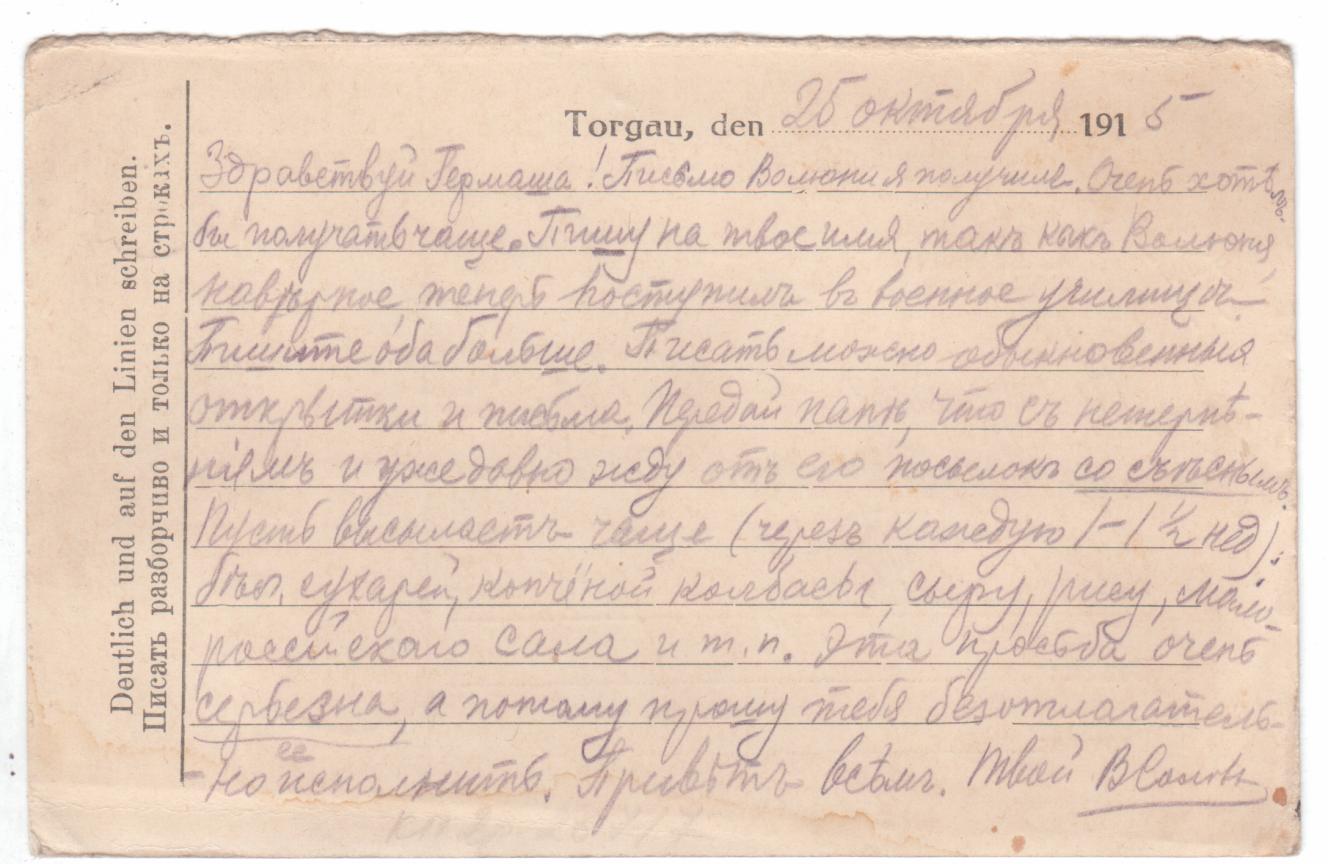 Deutlich und auf den Linien schreiben.
Писать разборчиво и только на строкіхъ.
Torgau, den 25 октября 1915
Здравствуй Гермаша! Письмо Волюни я получилъ. Очень хотѣлъ
бы получать чаще. Пишу на твое имя, такъ какъ Волюня,
навѣрное, теперь поступилъ въ военное училище.
Пишите оба больше. Писать можно обыкновенныя
открытки и письма. Передай папѣ, что съ нетерпѣ-
ніемъ и уже давно жду отъ его посылокъ со съѣстнымъ.
Пусть высылаетъ чаще (черезъ каждую 1–1 ½ нед):
бѣл. сухарей, копчёной колбасы, сыру, рису, мало-
россійскаго сала и т.п. Эта просьба очень
серьезна, а потому прошу тебя безотлагатель-
но ее исполнить. Привѣтъ всѣмъ. Твой